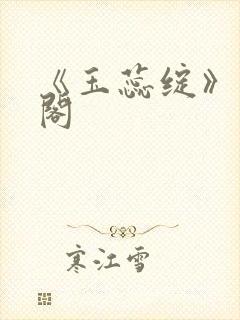 《玉蕊绽》
阁
寒江雪